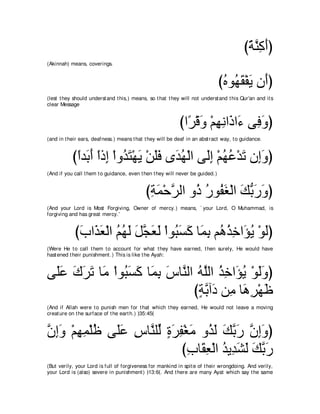 (أَكِنَّةً)
(Akinnah) means, coverings.
(أَن يَفْقَهُوهُ)
(lest they should understand this,) means, so that they will not understand this Qur'an and its
clear Message
(وَفِى ءَاذَانِهِمْ وَقْرًا)
(and in their ears, deafness.) means that they will be deaf in an abstract way, to guidance.
(وَإِن تَدْعُهُمْ إِلَى الْهُدَى فَلَنْ يَهْتَدُواْ إِذاً أَبَداً)
(And if you call them to guidance, even then they will never be guided.)
(وَرَبُّكَ الْغَفُورُ ذُو الرَّحْمَةِ)
(And your Lord is Most Forgiving, Owner of mercy.) means, `your Lord, O Muhammad, is
forgiving and has great mercy.'
(لَوْ يُؤَاخِذُهُم بِمَا كَسَبُواْ لَعَجَّلَ لَهُمُ الْعَذَابَ)
(Were He to call them to account for what they have earned, then surely, He would have
hastened their punishment.) This is like the Ayah:
(وَلَوْ يُؤَاخِذُ اللَّهُ النَّاسَ بِمَا كَسَبُواْ مَا تَرَكَ عَلَى
ظَهْرِهَا مِن دَآبَّةٍ)
(And if Allah were to punish men for that which they earned, He would not leave a moving
creature on the surface of the earth.) ﴿35:45﴾
(وَإِنَّ رَبَّكَ لَذُو مَغْفِرَةٍ لِّلنَّاسِ عَلَى ظُلْمِهِمْ وَإِنَّ
رَبَّكَ لَشَدِيدُ الْعِقَابِ)
(But verily, your Lord is full of forgiveness for mankind in spite of their wrongdoing. And verily,
your Lord is (also) severe in punishment) (13:6). And there are many Ayat which say the same